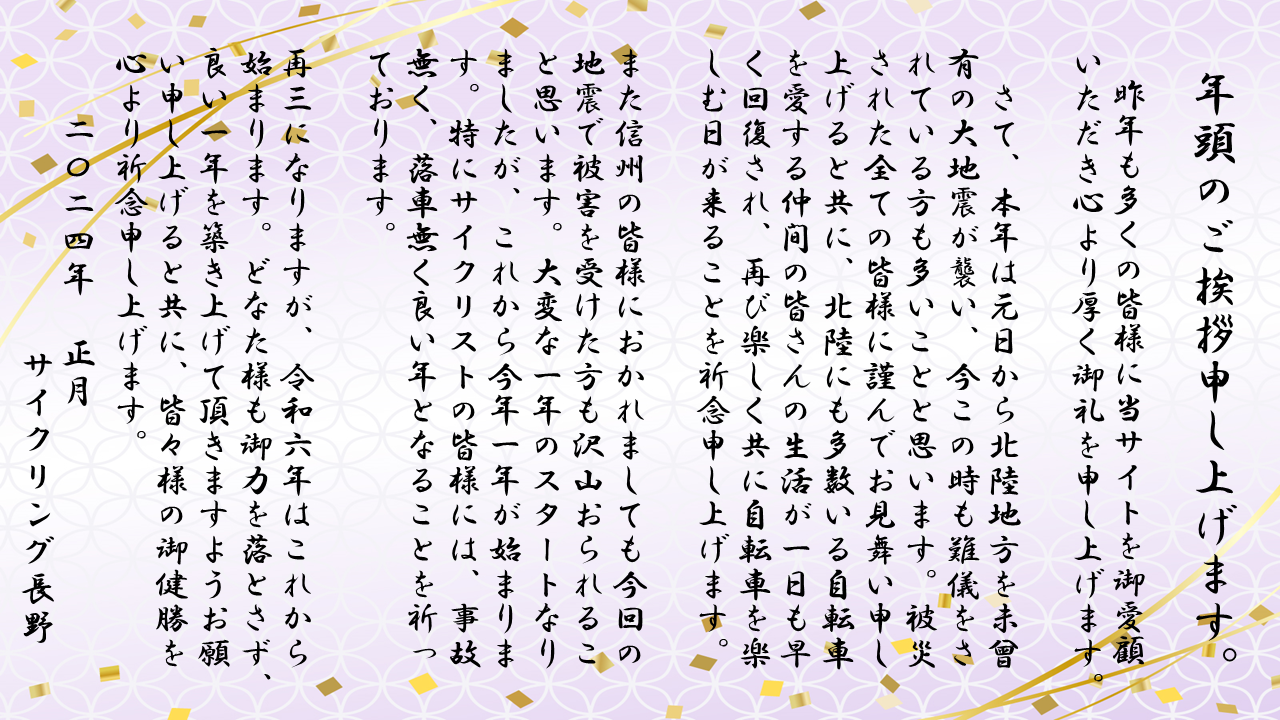 年頭のご挨拶申し上げます。
昨年も多くの皆様に当サイトを御愛顧
いただき心より厚く御礼を申し上げます。
さて、本年は元日から北陸地方を未曾
有の大地震が襲い、今この時も難儀をさ
れている方も多いことと思います。被災
された全ての皆様に謹んでお見舞い申し
上げると共に、北陸にも多数いる自転車
を愛する仲間の皆さんの生活が一日も早
く回復され、再び楽しく共に自転車を楽
しむ日が来ることを祈念申し上げます。
また信州の皆様におかれましても今回の
地震で被害を受けた方も沢山おられるこ
と思います。大変な一年のスタートなり
ましたが、これから今年一年が始まりま
す。特にサイクリストの皆様には、事故
無く、落車無く良い年となることを祈っ
ております。
再三になりますが、令和六年はこれから
始まります。どなた様も御力を落とさず、
良い一年を築き上げて頂きますようお願
い申し上げると共に、皆々様の御健勝を
心より祈念申し上げます。
二〇二四年 正月
サイクリング長野